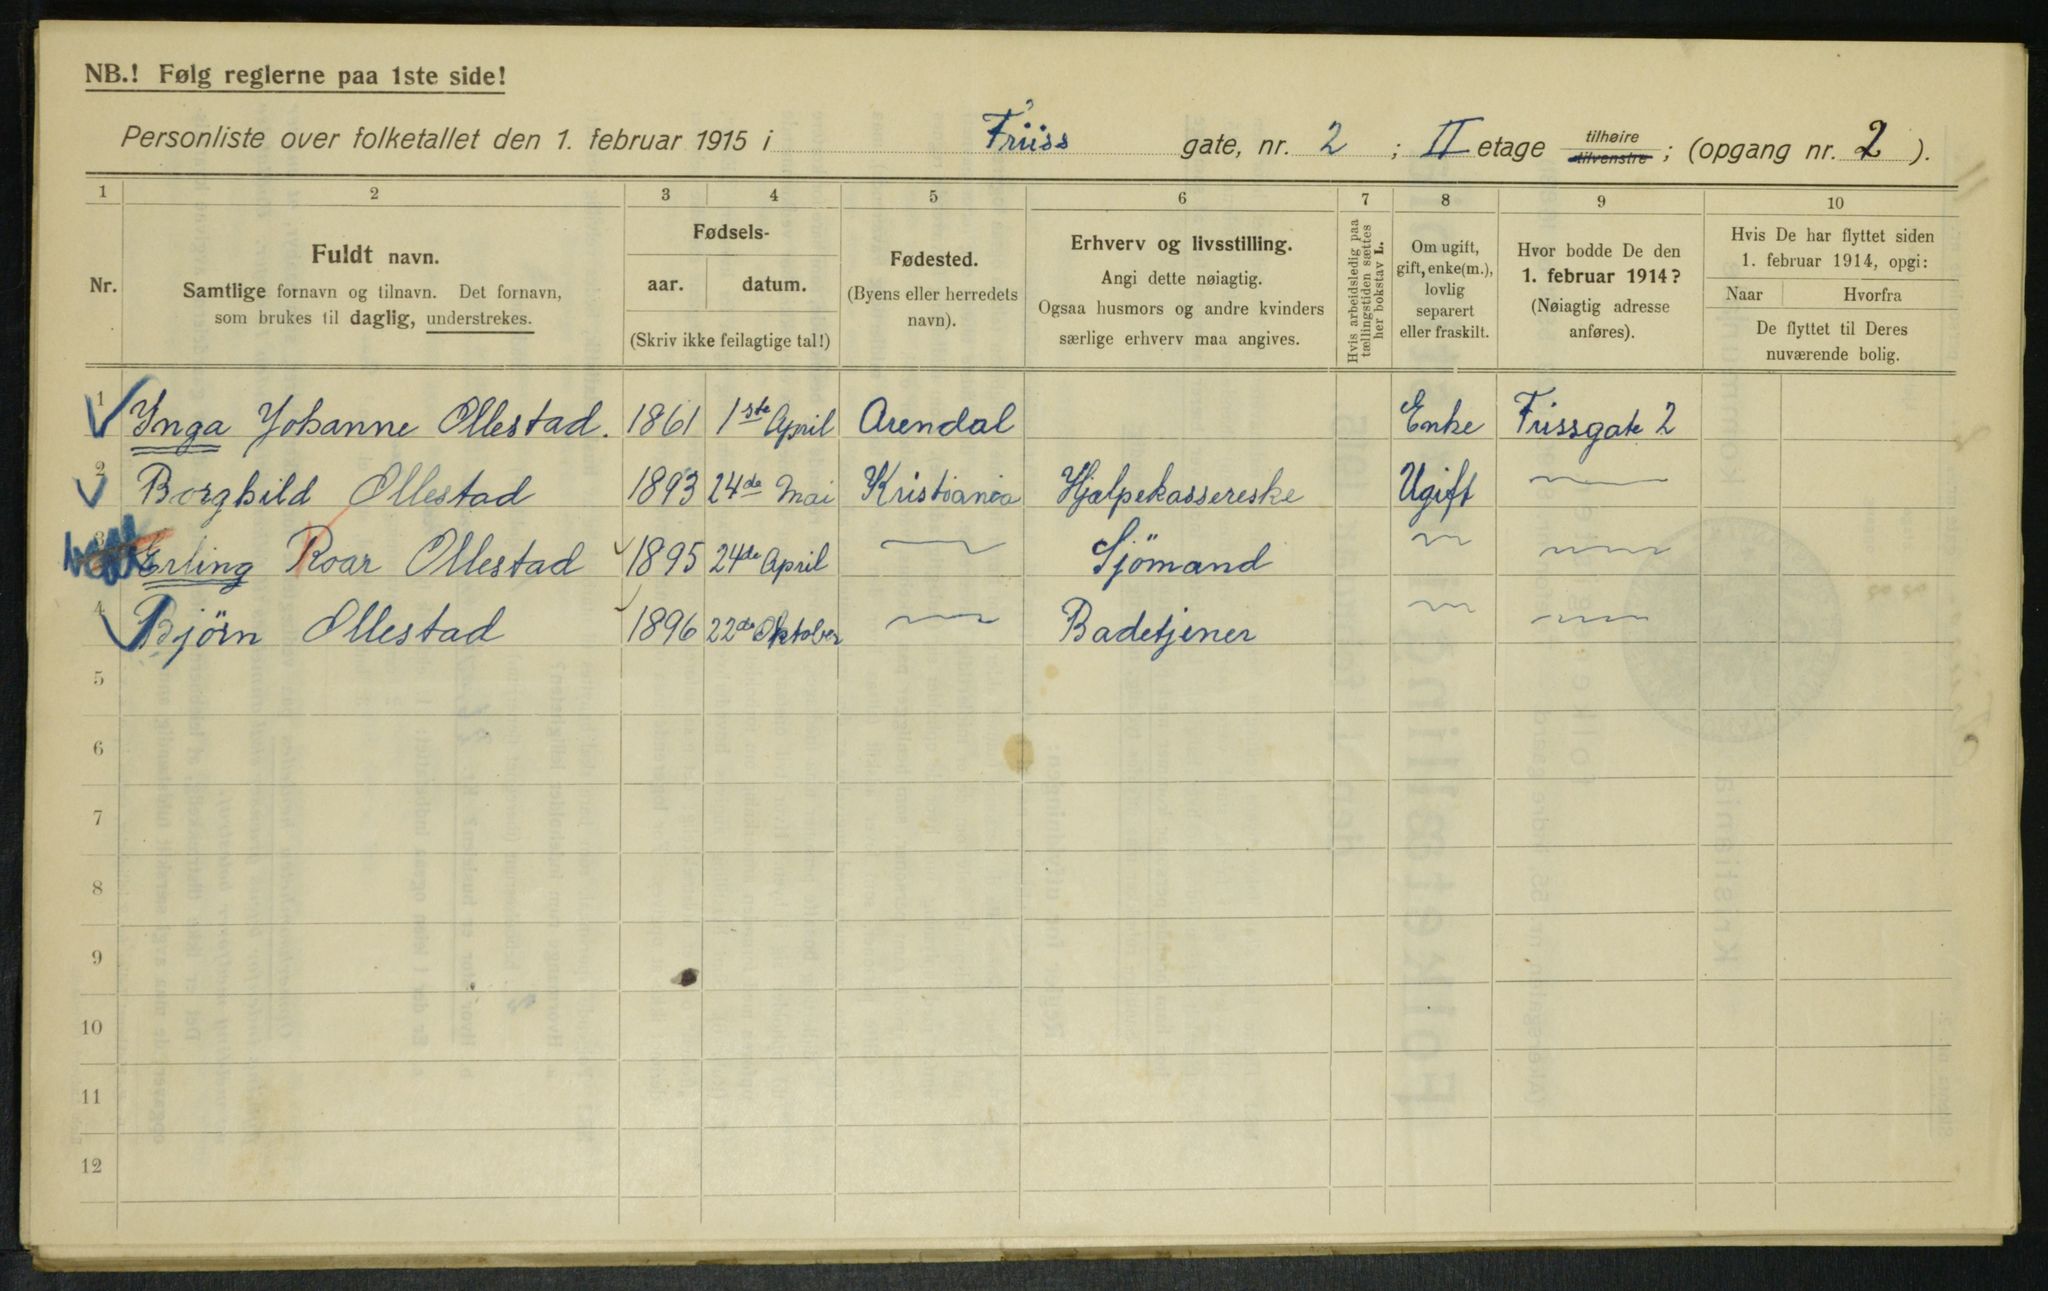 NB.! Følg reglerne paa 1ste side!
Personliste over folketallet den 1. februar 1915 i Friiss gate, nr. 2 ; II etage tilhøire tilvenstre ; (opgang nr. 2 ).
1 2 3 4 5 6 7 8 9 10
Nr.
Fuldt navn.
Samtlige fornavn og tilnavn. Det fornavn,
som brukes til daglig, understrekes.
Fødsels-
aar. datum.
(Skriv ikke feilagtige tal!)
Fødested.
(Byens eller herredets
navn).
Erhverv og livsstilling.
Angi dette nøiagtig.
Ogsaa husmors og andre kvinders
særlige erhverv maa angives.
Hvis arbeidsledig paa
tællingstiden sættes
her bokstav L.
Om ugift,
gift, enke(m.),
lovlig
separert
eller fraskilt.
Hvor bodde De den
1. februar 1914?
(Nøiagtig adresse
anføres).
Hvis De har flyttet siden
1. februar 1914, opgi:
Naar Hvorfra
De flyttet til Deres
nuværende bolig.
1 Ynga Johanne Ollestad. 1861 1ste April Arendal Enke Friissgate 2
2 Borghild Ollestad 1893 24de Mai Kristiania Hjælpekassereske Ugift
3 Erling Roar Ollestad 1895 24de April Sjömand
4 Bjørn Ollestad 1896 22de Oktober Badetjener
5
6
7
8
9
10
11
12